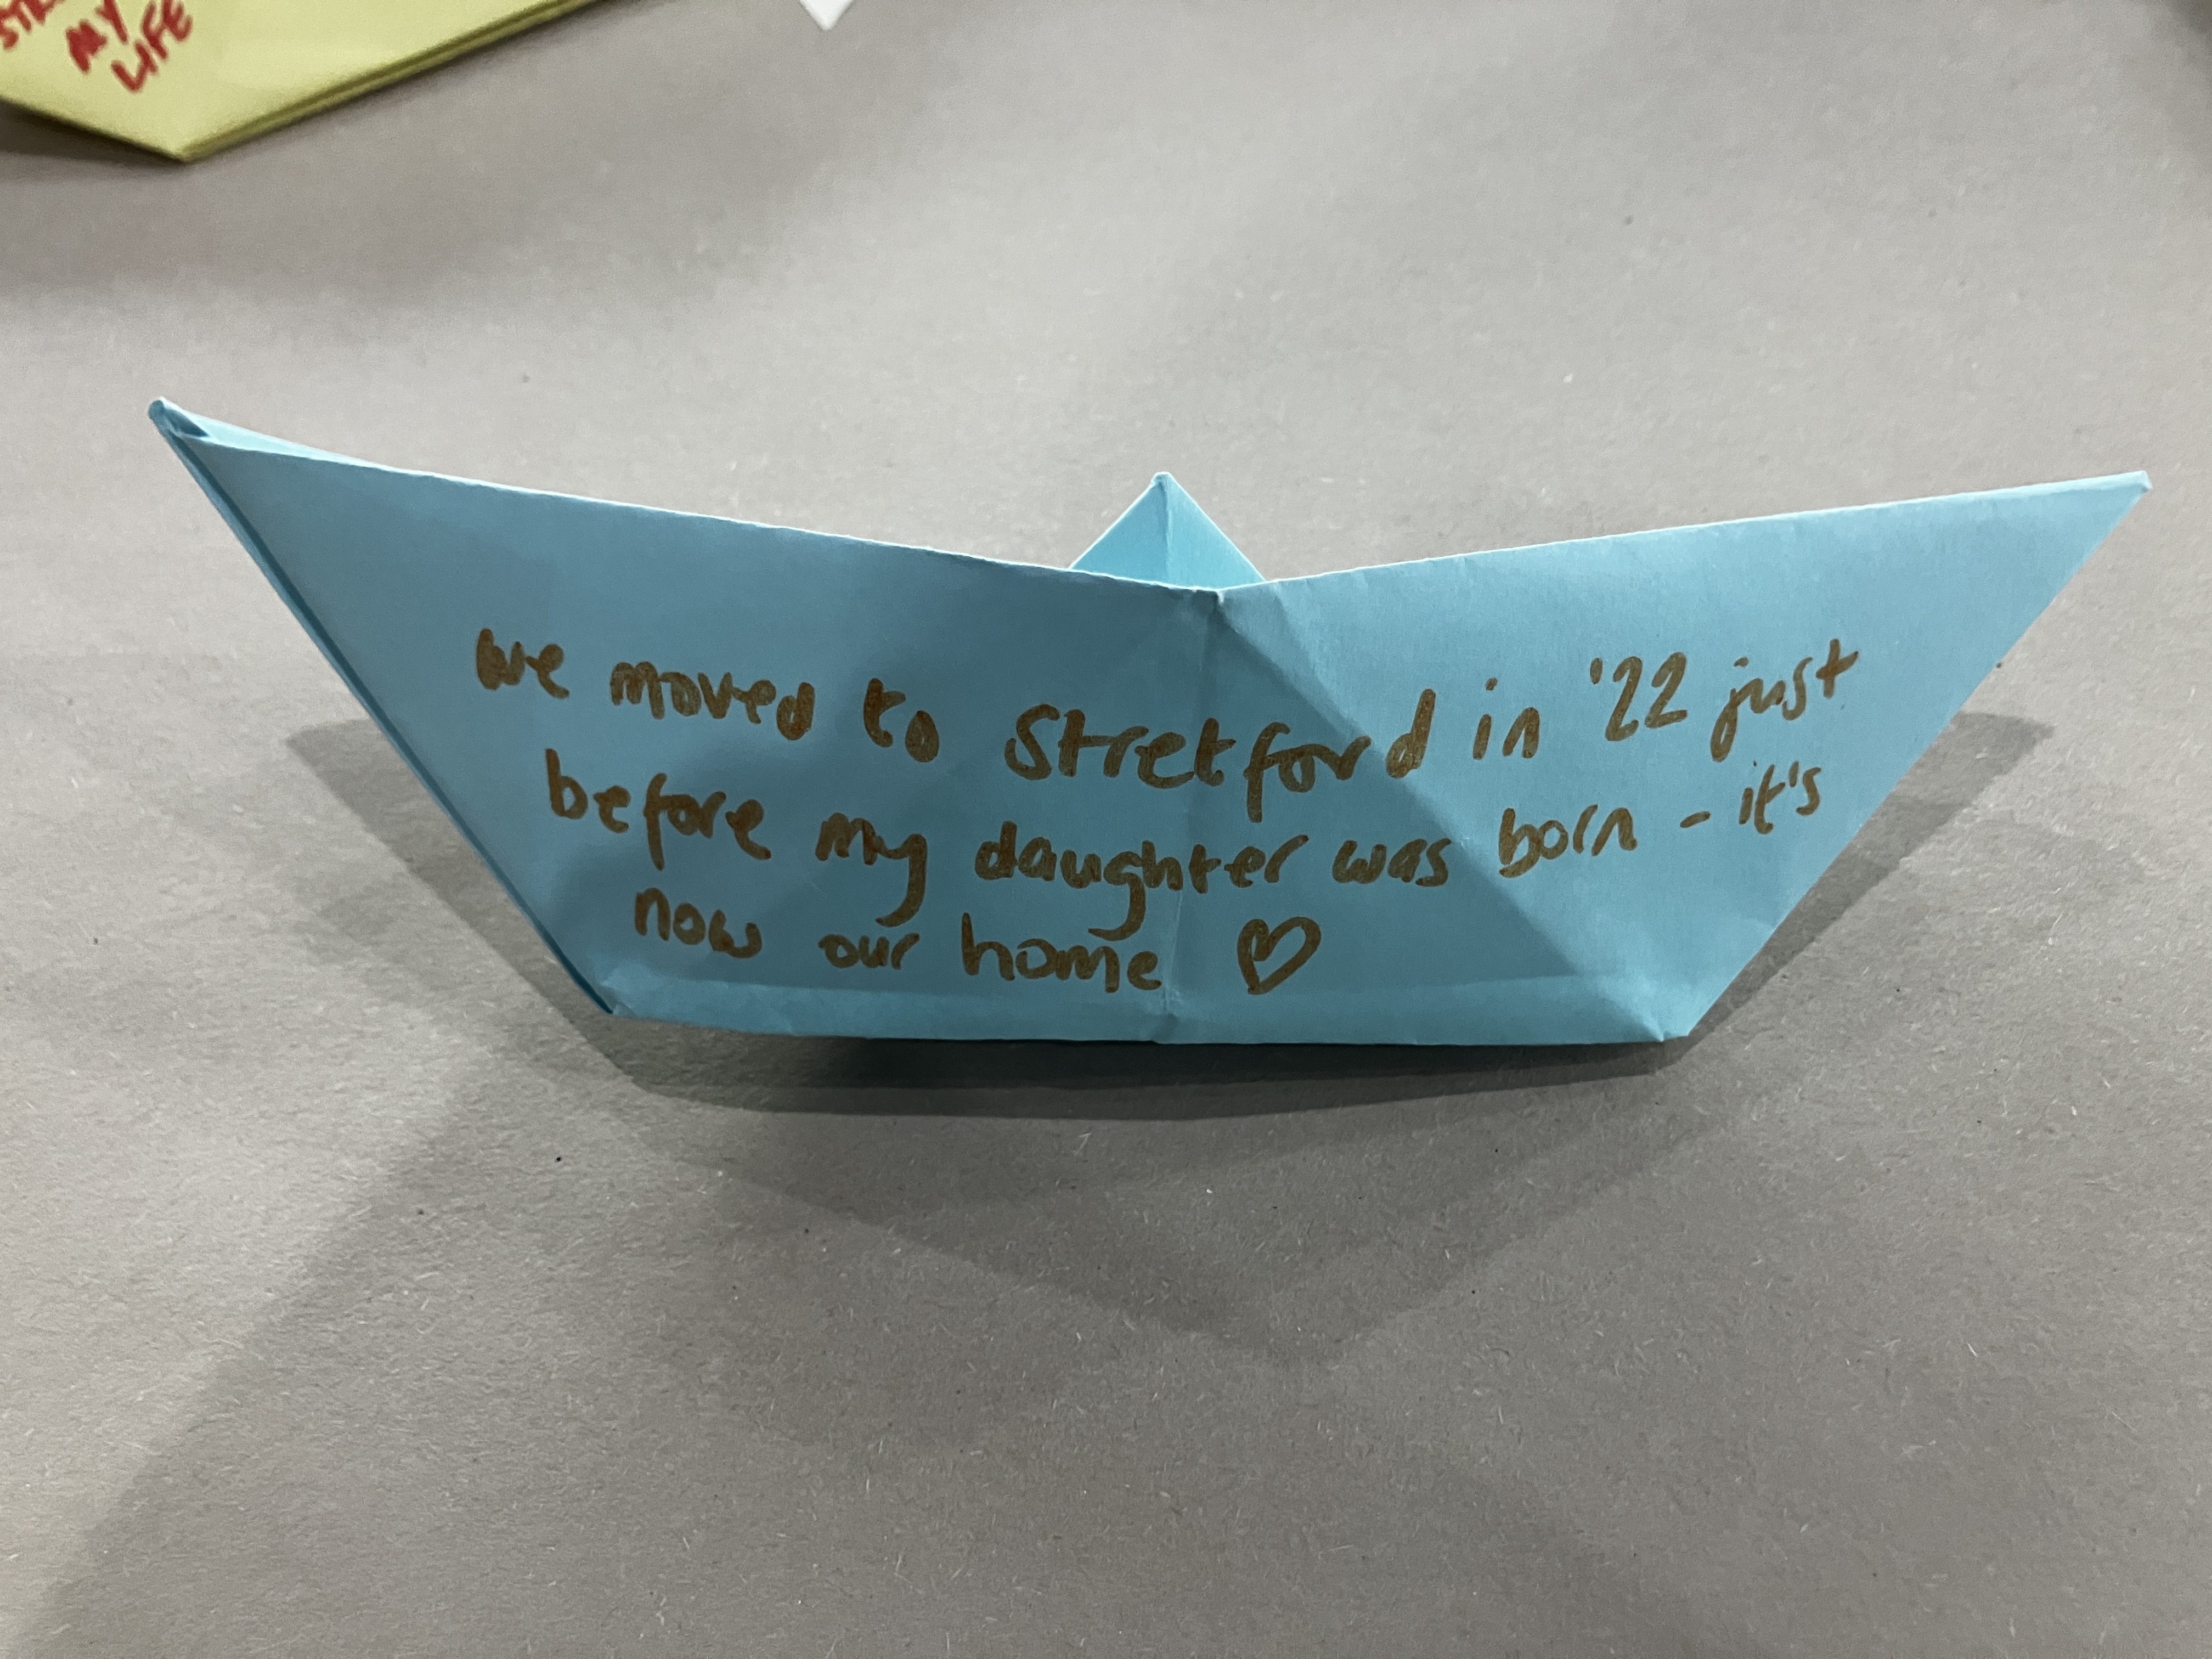 MY
LIFE
we moved to Stretford in '22 just
before my daughter was born - it's
now our home ♡